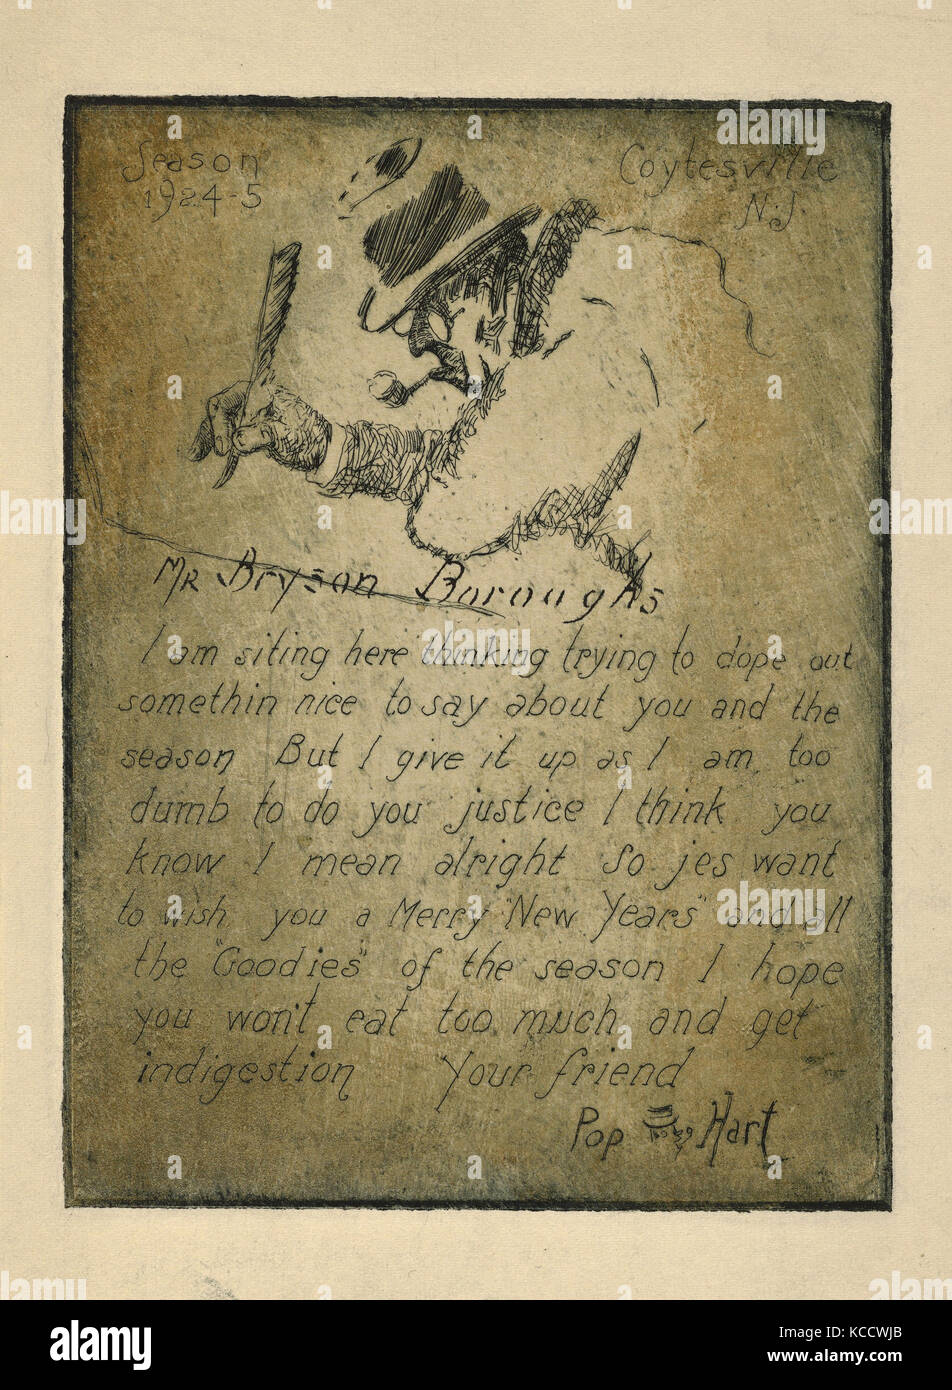 Season
1924-5
Coytesville
N.J.
Mr Bryson Boroughs
I am siting here thinking trying to dope out
somethin nice to say about you and the
season But I give it up as I am too
dumb to do you justice I think you
know I mean alright So jes want
to wish you a Merry "New Years" and all
the "Goodies" of the season I hope
you won't eat too much and get
indigestion Your friend
Pop Hart
alamy
Image ID: KCCWJB
www.alamy.com